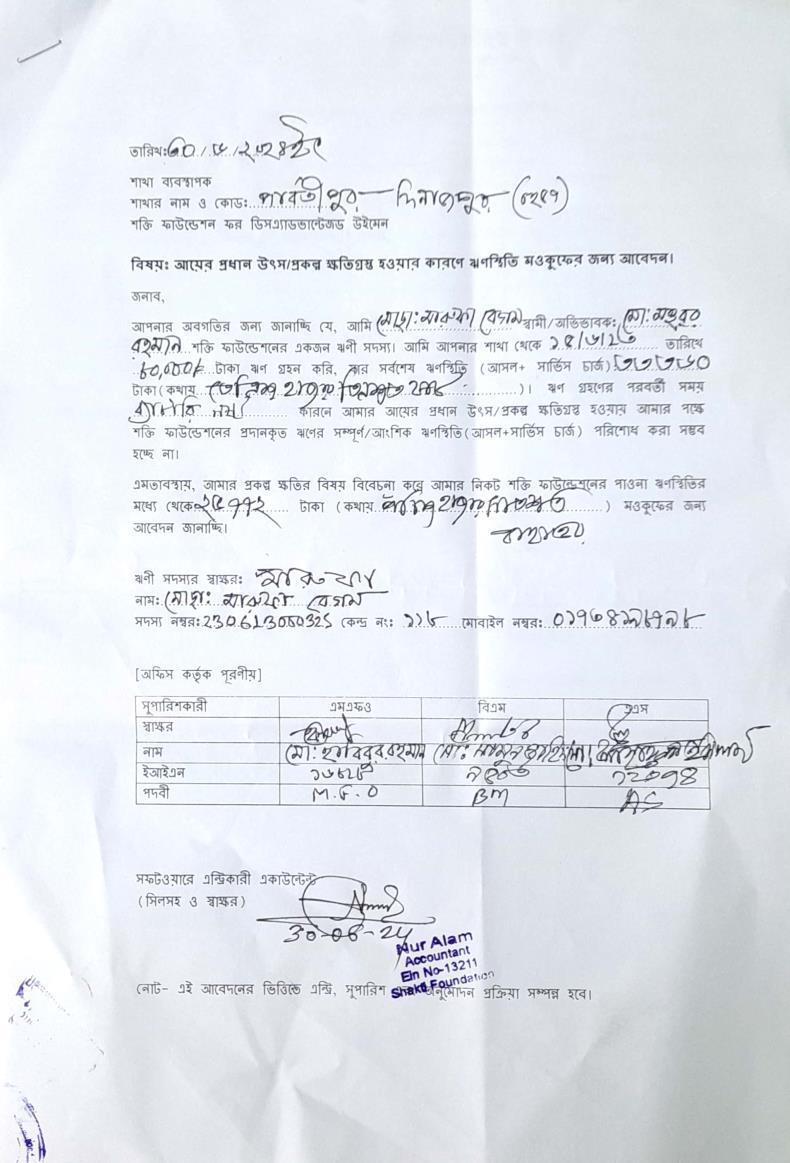 তারিখঃ ৩০/৬/২০২৪ইং
শাখা ব্যবস্থাপক
শাখার নাম ও কোড: পার্বতীপুর — দিনাজপুর (০২৫৭)
শক্তি ফাউন্ডেশন ফর ডিসএ্যাডভান্টেজড উইমেন
বিষয়: আয়ের প্রধান উৎস/প্রকল্প ক্ষতিগ্রস্ত হওয়ার কারণে ঋণস্থিতি মওকুফের জন্য আবেদন।
জনাব,
আপনার অবগতির জন্য জানাচ্ছি যে, আমি মোছা: মারুফা বেগম স্বামী/অভিভাবক: মো:
রহমান শক্তি ফাউন্ডেশনের একজন ঋণী সদস্য। আমি আপনার শাখা থেকে ১৫/৬/২৩ তারিখে
৮০,০০০/= টাকা ঋণ গ্রহন করি, যার সর্বশেষ ঋণস্থিতি (আসন+ সার্ভিস চার্জ)
টাকা (কথায় তেত্রিশ হাজার তিনশত ). ঋণ গ্রহণের পরবর্তী সময়
কারনে আমার আয়ের প্রধান উৎস/প্রকল্প ক্ষতিগ্রস্ত হওয়ায় আমার পক্ষে
শক্তি ফাউন্ডেশনের প্রদানকৃত ঋণের সম্পূর্ণ/আংশিক ঋণস্থিতি(আসন+সার্ভিস চার্জ) পরিশোধ করা সম্ভব
হচ্ছে না।
এমতাবস্থায়, আমার প্রকল্প ক্ষতির বিষয় বিবেচনা করে আমার নিকট শক্তি ফাউন্ডেশনের পাওনা ঋণস্থিতির
মধ্যে থেকে ২৫৭৭২ টাকা (কথায় পঁচিশ হাজার সাতশত ) মওকুফের জন্য
আবেদন জানাচ্ছি। বাহাত্তর
ঋণী সদস্যর স্বাক্ষর: মারুফা
নাম: মোছা: মারুফা বেগম
সদস্য নম্বর: 230613080325 কেন্দ্র নং: ১১৮ মোবাইল নম্বর:
[অফিস কর্তৃক পূরণীয়]
সুপারিশকারী এমএফও বিএম এএস
স্বাক্ষর
নাম মো: হাবিবুর রহমান মো: মামুন
ইআইএন
পদবী M.F.O BM AS
সফটওয়ারে এন্ট্রিকারী একাউন্টেন্ট
(সিলসহ ও স্বাক্ষর)
30-06-24
Nur Alam
Accountant
Ein No-13211
Shakti Foundation
নোট- এই আবেদনের ভিত্তিতে এন্ট্রি, সুপারিশ অনুমোদন প্রক্রিয়া সম্পন্ন হবে।